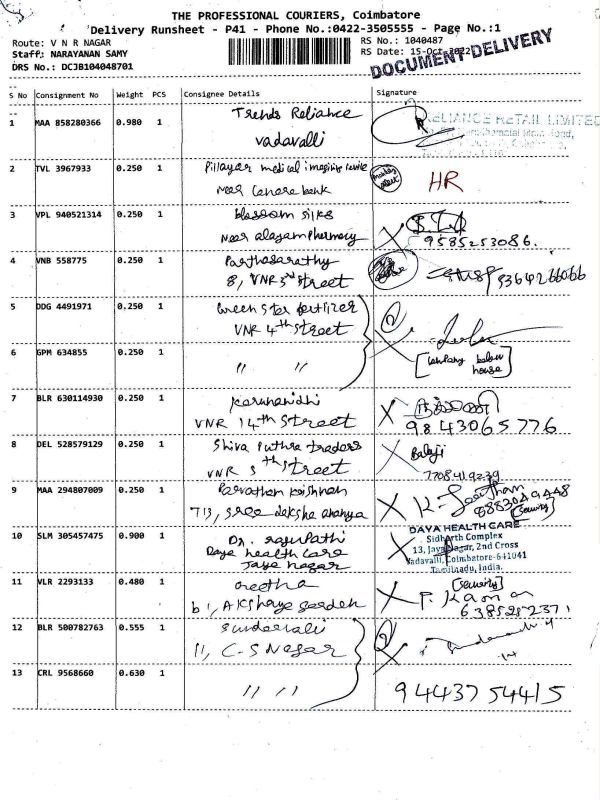 THE PROFESSIONAL COURIERS, Coimbatore
Delivery Runsheet - P41 - Phone No.:0422-3505555 - Page No.:1
Route: V N R NAGAR
RS No.: 1040487
Staff: NARAYANAN SAMY
RS Date: 15-Oct-2022
DRS No.: DCJB104048701
DOCUMENT DELIVERY
S No Consignment No Weight PCS Consignee Details Signature
1 MAA 858280366 0.980 1 Trends Reliance
vadavalli
RELIANCE RETAIL LIMITED
2 TVL 3967933 0.250 1 Pillayar medical imaging
Near Canara bank
HR
3 VPL 940521314 0.250 1 blossom silks
Near alayam Pharmacy
9585253086.
4 VNB 558775 0.250 1 Parthasarathy
8, VNR 3rd street
9364266066
5 DDG 4491971 0.250 1 Green Star fertilizer
VNR 4th street
6 GPM 634855 0.250 1 " "
[Company below
house]
7 BLR 630114930 0.250 1 Karunanidhi
VNR 14th Street
9843065776
8 DEL 528579129 0.250 1 Shiva Puthra traders
VNR 3th Street
Balaji
7708419239
9 MAA 294807009 0.250 1 Parvathan Krishnan
713, Sree daksha ananya
K. Gowtham
8883049448
[Security]
10 SLM 305457475 0.900 1 Dr. rajupathi
Daya health Care
Jaya nagar
DAYA HEALTH CARE
Sidharth Complex
13, Jaya Nagar, 2nd Cross
Vadavalli, Coimbatore-641041
Tamilnadu, India.
11 VLR 2293133 0.480 1 Geetha
b1, Akshaya garden
[Security]
P. Kaman
6385252371
12 BLR 500782763 0.555 1 Sundervali
11, C-S Nagar
13 CRL 9568660 0.630 1 " "
9443754415